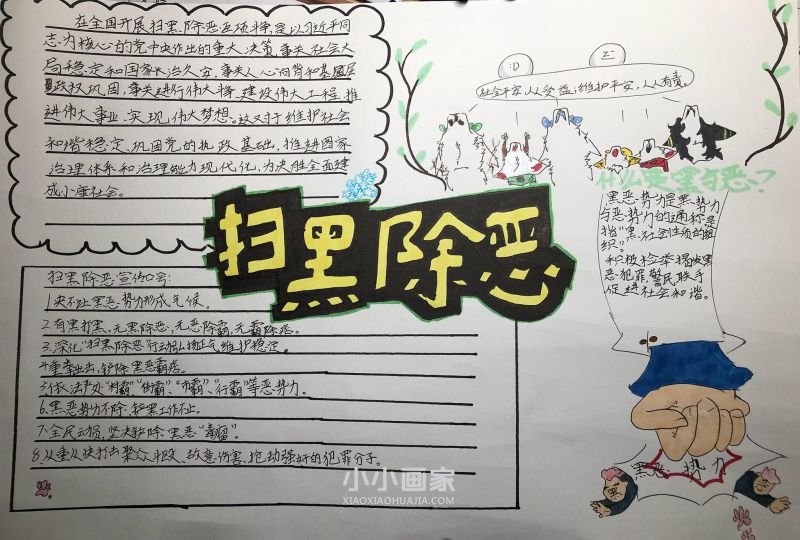 在全国开展扫黑除恶专项斗争,是以习近平同
志为核心的党中央作出的重大决策,事关社会大
局稳定和国家长治久安,事关人心向背和基层
政权巩固,事关进行伟大斗争,建设伟大工程,推
进伟大事业,实现伟大梦想。
对于维护社会
和谐稳定、巩固党的执政基础、推进国家
治理体系和治理能力现代化,为决胜全面建
成小康社会。
社会平安,人人受益;维护平安,人人有责。
什么是黑与恶?
黑恶势力是黑势力
与恶势力的通称是
指“黑社会性质的组
织”。
积极检举揭发黑
恶犯罪,警民联手
促进社会和谐。
扫黑除恶
扫黑除恶宣传口号:
1.决不让黑恶势力形成气候。
2.有黑打黑、无黑除恶、无恶除霸、无霸除痞。
3.深化“扫黑除恶”行动弘扬正气维护稳定。
4.重拳出击,铲除黑恶霸痞。
5.依法严处“村霸”、“街霸”、“市霸”、“行霸”等恶势力。
6.黑恶势力不除,铲黑工作不止。
7.全民动员,坚决铲除黑恶“毒瘤”。
8.从重从快打击聚众斗殴、故意伤害、抢劫强奸的犯罪分子。
黑恶势力
小小画家
XIAOXIAOHUAJIA.COM